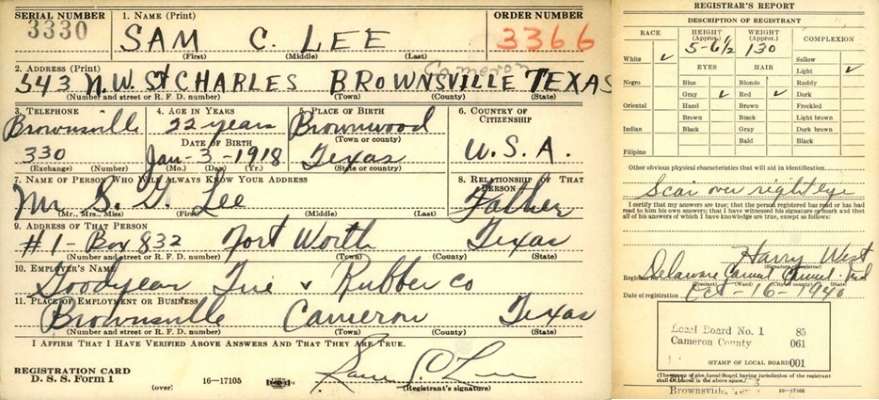 SERIAL NUMBER
1. NAME (Print)
ORDER NUMBER
3330
SAM C. LEE
3366
(First) (Middle) (Last)
2. ADDRESS (Print)
Cameron
543 N.W. St CHARLES BROWNSVILLE TEXAS
(Number and street or R. F. D. number) (Town) (County) (State)
3. TELEPHONE
4. AGE IN YEARS
5. PLACE OF BIRTH
6. COUNTRY OF CITIZENSHIP
Brownsville
22 years
Brownwood
DATE OF BIRTH
(Town or county)
330
Jan-3-1918
Texas
U.S.A.
(Exchange) (Number)
(Mo.) (Day) (Yr.)
(State or country)
7. NAME OF PERSON WHO WILL ALWAYS KNOW YOUR ADDRESS
8. RELATIONSHIP OF THAT PERSON
Mr S. G. Lee
Father
(Mr., Mrs., Miss) (First) (Middle) (Last)
9. ADDRESS OF THAT PERSON
#1-Box 832 Fort Worth Texas
(Number and street or R. F. D. number) (Town) (County) (State)
10. EMPLOYER'S NAME
Goodyear Tire & Rubber Co
11. PLACE OF EMPLOYMENT OR BUSINESS
Brownsville Cameron Texas
(Number and street or R. F. D. number) (Town) (County) (State)
I AFFIRM THAT I HAVE VERIFIED ABOVE ANSWERS AND THAT THEY ARE TRUE.
REGISTRATION CARD
D. S. S. Form 1
(over)
16-17105
Sam C. Lee
(Registrant's signature)
REGISTRAR'S REPORT
DESCRIPTION OF REGISTRANT
RACE
HEIGHT (Approx.)
WEIGHT (Approx.)
COMPLEXION
5-6½
130
White ✓
EYES
HAIR
Sallow
Light ✓
Negro
Blue
Blonde
Ruddy
Gray ✓
Red ✓
Dark
Oriental
Hazel
Brown
Freckled
Brown
Black
Light brown
Indian
Black
Gray
Dark brown
Bald
Black
Filipino
Other obvious physical characteristics that will aid in identification
Scar over right eye
I certify that my answers are true; that the person registered has read or has had
read to him his own answers; that I have witnessed his signature or mark and that
all of his answers of which I have knowledge are true, except as follows:
Harry West
Registrar
Delaware
Date of registration Oct-16-1940
Local Board No. 1 85
Cameron County 061
001
STAMP OF LOCAL BOARD
(The stamp of the Local Board having jurisdiction of the registrant
shall be placed in the above space.)
Brownsville,
16-17105